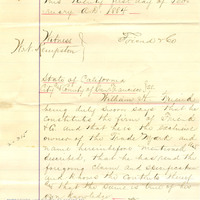 ruary A.D. 1884
Witness
Friend & Co
State of California
City & County of San Francisco } ss
William Friend
being duly sworn says that he
constitutes the firm of Friend
& Co and that he is the exclusive
owner of the Trade Mark and
name hereinbefore mentioned &
described, that he has read the
foregoing claim and specification
and knows the contents thereof
that the same is true of his
own knowledge